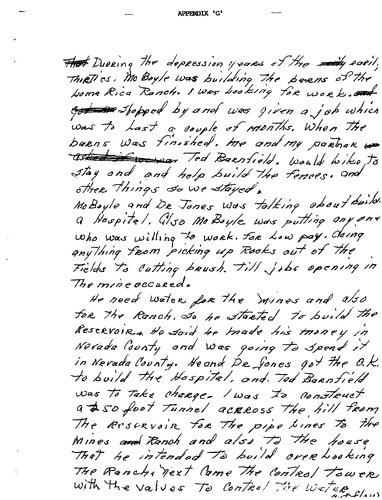 APPENDIX 'G'
Durring the depression years of the early
Thirties. McBoyle was building the barns of the
Loma Rica Ranch. I was Looking for work.
stopped by and was given a job which
was to Last a couple of months. When the
barns was finished. me and my partnar
Ted Barnfield. Would Like to
stay and and help build the fences. and
other things so we stayed.
McBoyle and Dr Jones was talking about build.
a Hospital. Also McBoyle was putting any one
who was willing to work. For Low pay. doing
anything from picking up Rocks out of the
Fields to Cutting brush. Till jobs opening in
The mine occured.
He need water for the mines and also
for the Ranch. So he started to build the
Reservoir. He said he made his money in
Nevada County and was going to spend it
in Nevada County. He and Dr. Jones got the O.K.
to build the Hospital, and Ted Barnfield
was to Take charge. I was to construct
a 250 foot Tunnel acrross the hill from
The Reservoir for The pipe Lines to the
Mines Ranch and also to the house
That he intended to build over Looking
The Ranch. Next Came The Control Tower
with the valves To Control The Water